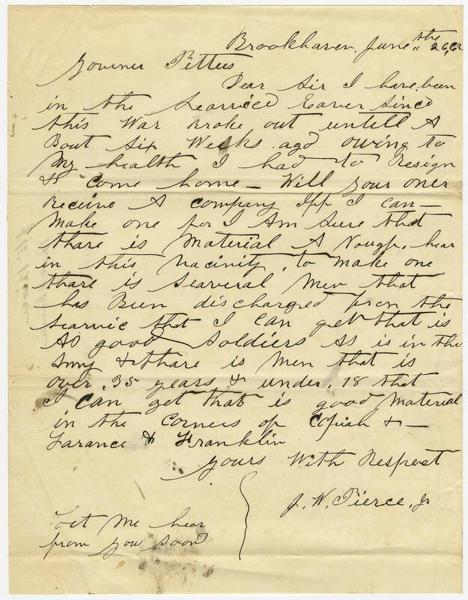 Brookhaven, June the 26, 62
Governer Pettus
Dear Sir I have been
in the Searviced Eaver Sinced
this War broke out untill A
Bout Six Weeks ago owing to
My health I had to Resign
& come home – Will your oner
Receive A company Iff I can –
Make one for I Am Sure that
thare is Material A Nough, hear
in this Vacinity, to make one
thare is Searveral Men that
has Bin discharged from the
Searvic that I can get that is
As good Soldiers As is in the
Army & thare is Men that is
over, 35 years & under, 18 that
I can get that is good Material
in the corners of Copiah & –
Larance & Franklin
Yours With Respect
J. W. Pierce, Jr
Let Me hear
from you soon